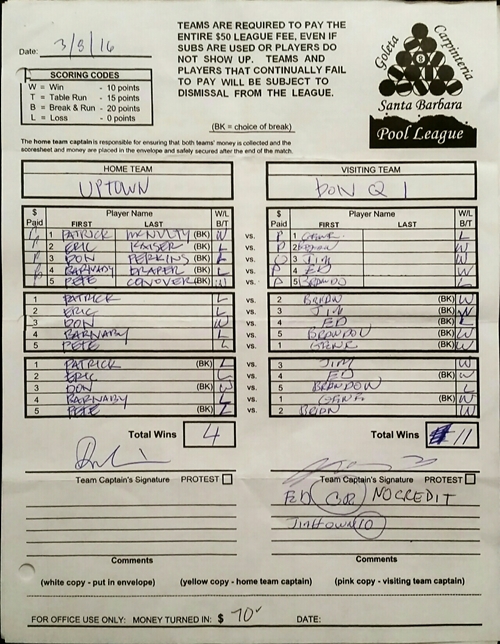 TEAMS ARE REQUIRED TO PAY THE
ENTIRE $50 LEAGUE FEE, EVEN IF
SUBS ARE USED OR PLAYERS DO
NOT SHOW UP. TEAMS AND
PLAYERS THAT CONTINUALLY FAIL
TO PAY WILL BE SUBJECT TO
DISMISSAL FROM THE LEAGUE.
Date: 3/8/16
Goleta Carpinteria
Santa Barbara
Pool League
SCORING CODES
W = Win - 10 points
T = Table Run - 15 points
B = Break & Run - 20 points
L = Loss - 0 points
(BK = choice of break)
The home team captain is responsible for ensuring that both teams' money is collected and the
scoresheet and money are placed in the envelope and safely secured after the end of the match.
HOME TEAM VISITING TEAM
UPTOWN DON Q 1
$ Paid Player Name FIRST LAST W/L B/T $ Paid Player Name FIRST LAST W/L B/T
1 PATRICK McNULTY (BK) W vs. P 1 L
2 ERIC KAISER (BK) L vs. P 2 W
3 DON PERKINS (BK) L vs. 3 JIM W
4 BARNABY DRAPER (BK) L vs. P 4 ED W
5 PETE CONOVER (BK) W vs. P 5 BRANDO L
1 PATRICK L vs. 2 BRIAN (BK) W
2 ERIC L vs. 3 JIM (BK) W
3 DON W vs. 4 ED (BK) L
4 BARNABY L vs. 5 BRANDON (BK) W
5 PETE L vs. 1 GENE (BK) W
1 PATRICK (BK) L vs. 3 JIM W
2 ERIC L vs. 4 ED (BK) W
3 DON (BK) W vs. 5 BRANDON L
4 BARNABY L vs. 1 GENE (BK) W
5 PETE (BK) L vs. 2 BRIAN W
Total Wins 4 Total Wins 11
Team Captain's Signature PROTEST Team Captain's Signature PROTEST
ED CR NO CREDIT
JIM 10
Comments Comments
(white copy - put in envelope) (yellow copy - home team captain) (pink copy - visiting team captain)
FOR OFFICE USE ONLY: MONEY TURNED IN: $ 70 DATE: